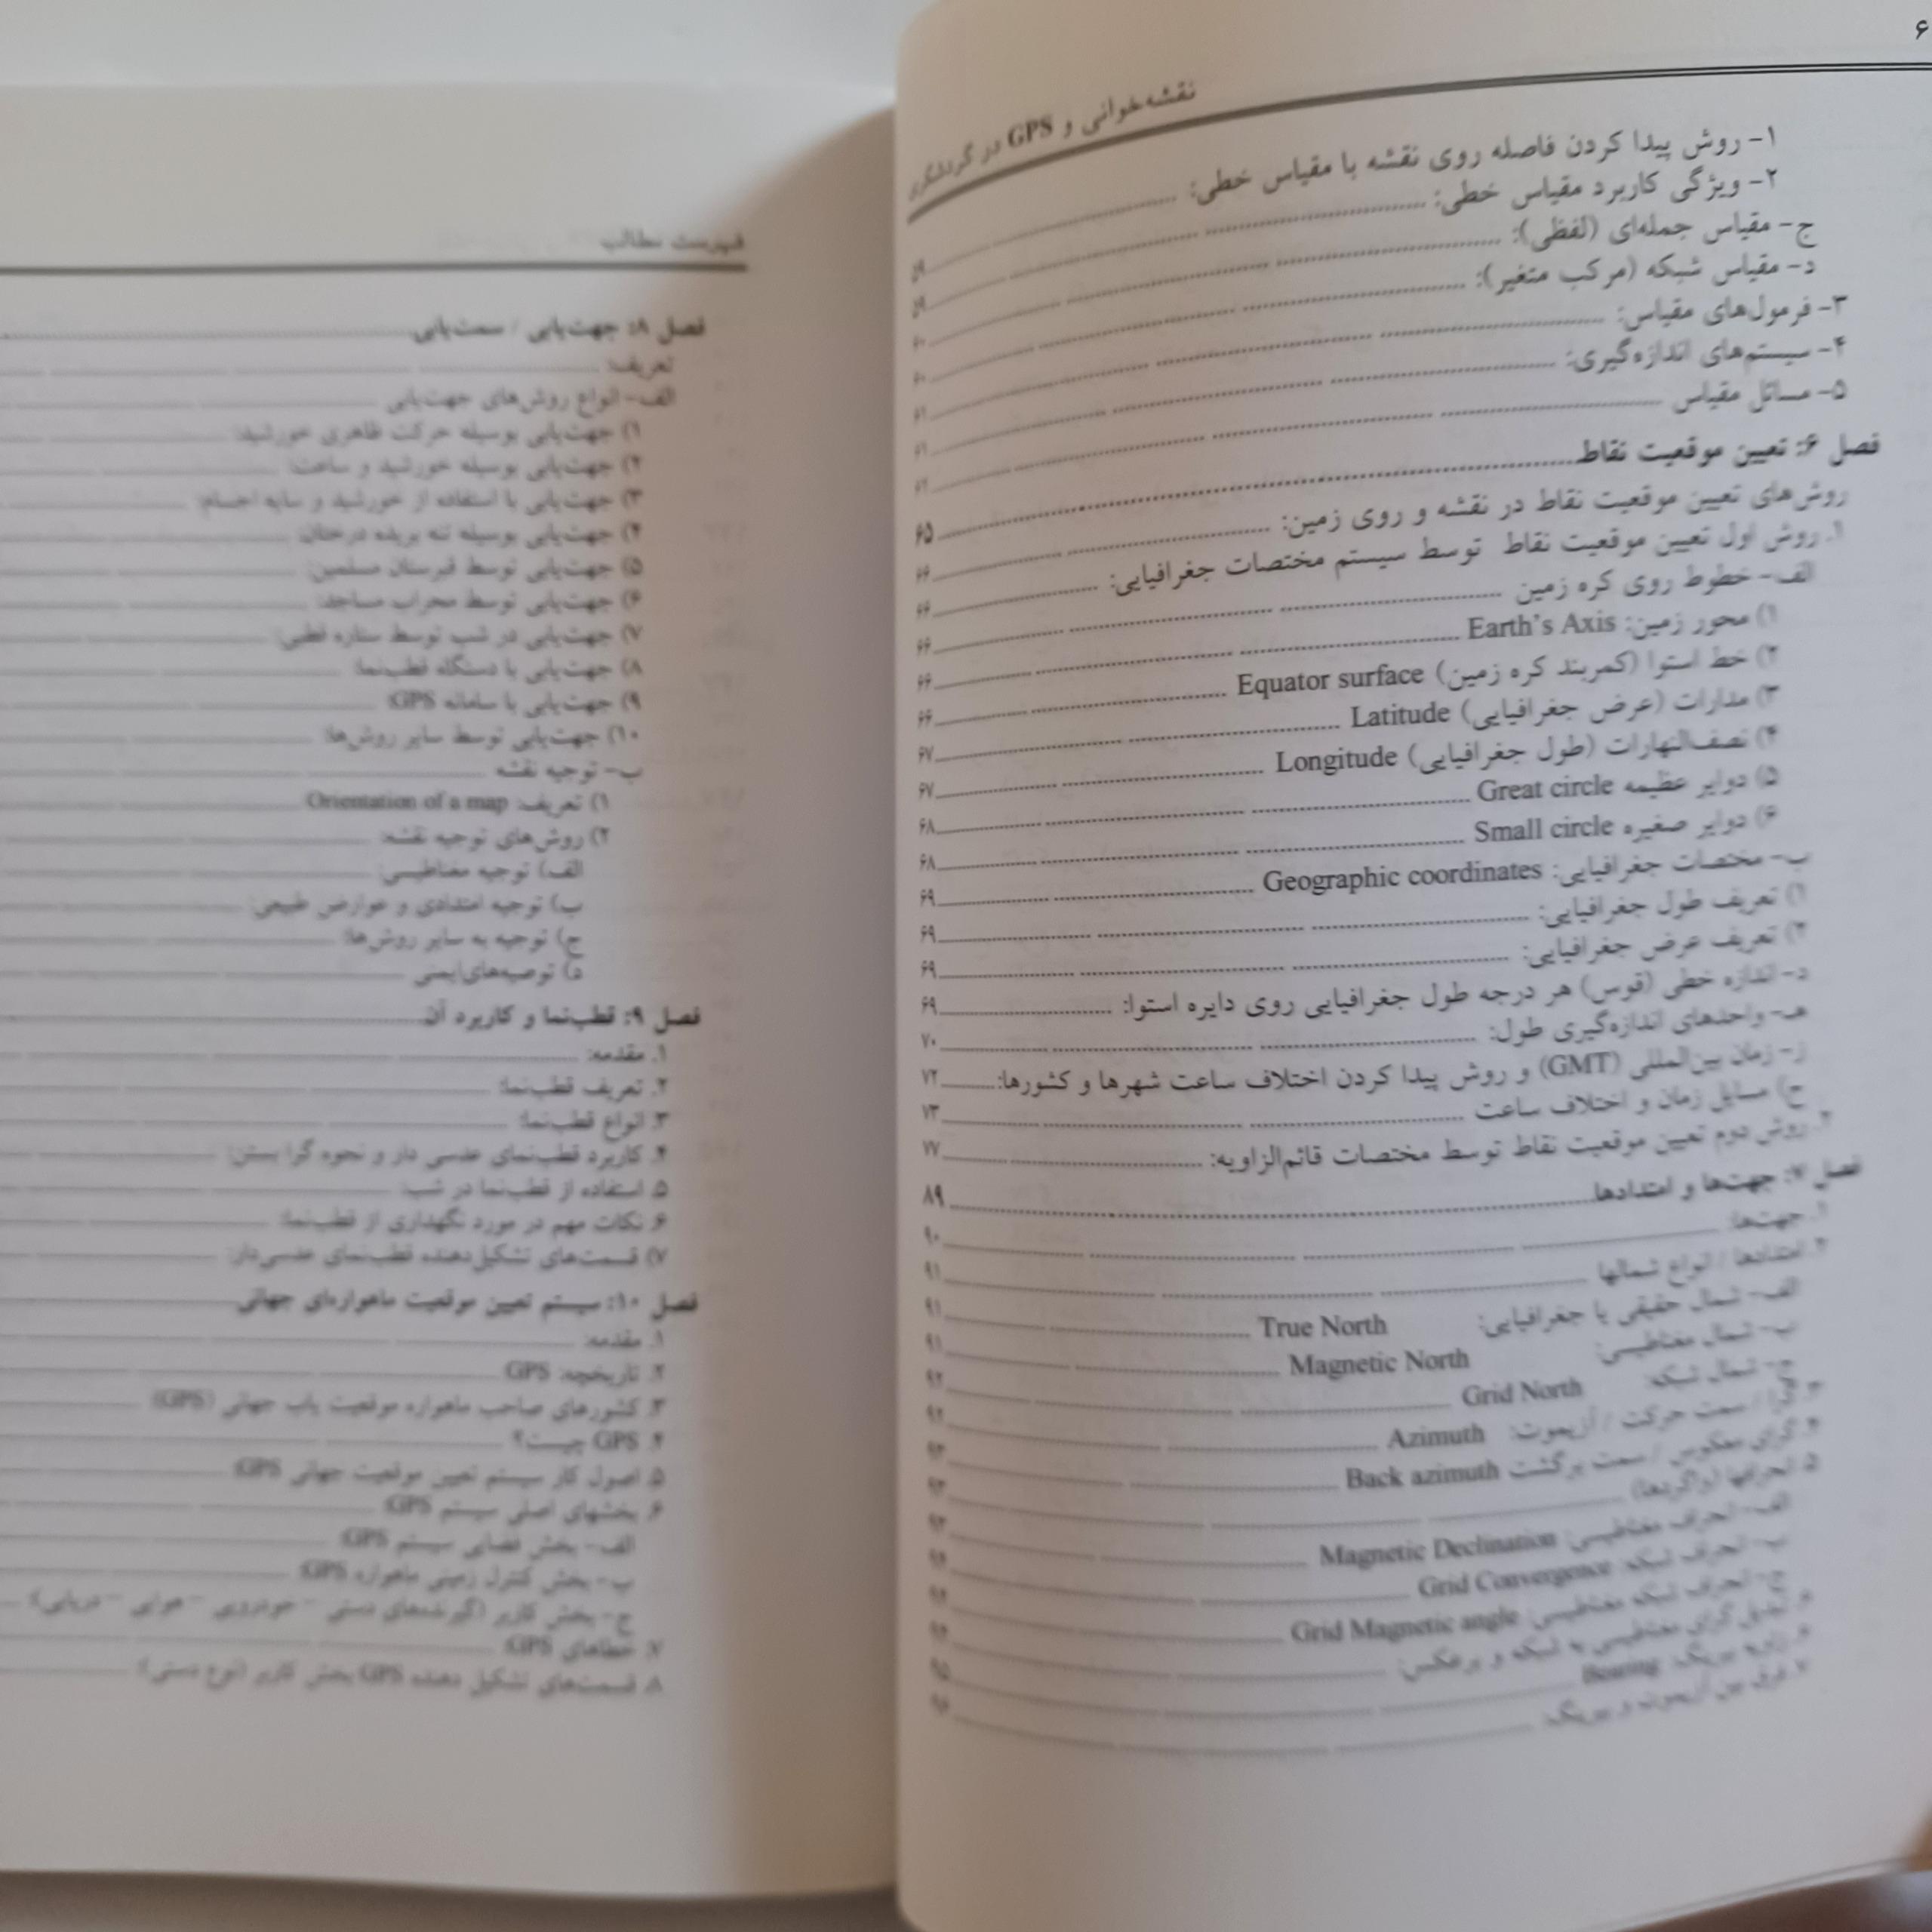 ۶
نقشه‌خوانی و GPS در گردشگری
۱- روش پیدا کردن فاصله روی نقشه با مقیاس خطی: ۵۹
۲- ویژگی کاربرد مقیاس خطی: ۵۹
ج- مقیاس جمله‌ای (لفظی): ۶۰
د- مقیاس شبکه (مرکب متغیر): ۶۰
۳- فرمول‌های مقیاس: ۶۱
۴- سیستم‌های اندازه‌گیری: ۶۱
۵- مسائل مقیاس ۶۲
فصل ۶: تعیین موقعیت نقاط ۶۵
روش‌های تعیین موقعیت نقاط در نقشه و روی زمین: ۶۶
۱. روش اول تعیین موقعیت نقاط توسط سیستم مختصات جغرافیایی: ۶۶
الف- خطوط روی کره زمین ۶۶
۱) محور زمین: Earth's Axis ۶۶
۲) خط استوا (کمربند کره زمین) Equator surface ۶۶
۳) مدارات (عرض جغرافیایی) Latitude ۶۷
۴) نصف‌النهارات (طول جغرافیایی) Longitude ۶۷
۵) دوایر عظیمه Great circle ۶۸
۶) دوایر صغیره Small circle ۶۸
ب- مختصات جغرافیایی: Geographic coordinates ۶۹
۱) تعریف طول جغرافیایی: ۶۹
۲) تعریف عرض جغرافیایی: ۶۹
د- اندازه خطی (قوس) هر درجه طول جغرافیایی روی دایره استوا: ۶۹
هـ- واحدهای اندازه‌گیری طول: ۷۰
ز- زمان بین‌المللی (GMT) و روش پیدا کردن اختلاف ساعت شهرها و کشورها: ۷۲
ح) مسایل زمان و اختلاف ساعت ۷۳
۲. روش دوم تعیین موقعیت نقاط توسط مختصات قائم‌الزاویه: ۷۷
فصل ۷: جهت‌ها و امتدادها ۸۹
۱. جهت‌ها: ۹۰
۲. امتدادها / انواع شمالها ۹۱
الف- شمال حقیقی یا جغرافیایی: True North ۹۱
ب- شمال مغناطیسی: Magnetic North ۹۱
ج- شمال شبکه: Grid North ۹۲
۳. گرا / سمت حرکت / آزیموت: Azimuth ۹۲
۴. گرای معکوس / سمت برگشت Back azimuth ۹۳
۵. انحرافها (واگردها) ۹۳
الف- انحراف مغناطیسی: Magnetic Declination ۹۳
ب- انحراف شبکه: Grid Convergence ۹۴
ج- انحراف شبکه مغناطیسی: Grid Magnetic angle ۹۴
تبدیل گرای مغناطیسی به شبکه و برعکس: ۹۴
زاویه بیرینگ: Bearing ۹۵
فرق بین آزیموت و بیرینگ: ۹۶
فهرست مطالب
فصل ۸: جهت‌یابی / سمت‌یابی
تعریف:
الف- انواع روش‌های جهت‌یابی
۱) جهت‌یابی بوسیله حرکت ظاهری خورشید:
۲) جهت‌یابی بوسیله خورشید و ساعت:
۳) جهت‌یابی با استفاده از خورشید و سایه اجسام:
۴) جهت‌یابی بوسیله تنه بریده درختان:
۵) جهت‌یابی توسط قبرستان مسلمین:
۶) جهت‌یابی توسط محراب مساجد:
۷) جهت‌یابی در شب توسط ستاره قطبی:
۸) جهت‌یابی با دستگاه قطب‌نما:
۹) جهت‌یابی با سامانه GPS:
۱۰) جهت‌یابی توسط سایر روش‌ها:
ب- توجیه نقشه
۱) تعریف: Orientation of a map
۲) روش‌های توجیه نقشه:
الف) توجیه مغناطیسی:
ب) توجیه امتدادی و عوارض طبیعی:
ج) توجیه به سایر روش‌ها:
د) توصیه‌های‌ایمنی
فصل ۹: قطب‌نما و کاربرد آن
۱. مقدمه:
۲. تعریف قطب‌نما:
۳. انواع قطب‌نما:
۴. کاربرد قطب‌نمای عدسی دار و نحوه گرا بستن:
۵. استفاده از قطب‌نما در شب:
۶. نکات مهم در مورد نگهداری از قطب‌نما:
۷) قسمت‌های تشکیل‌دهنده قطب‌نمای عدسی‌دار:
فصل ۱۰: سیستم تعیین موقعیت ماهواره‌ای جهانی
۱. مقدمه:
۲. تاریخچه: GPS
۳. کشورهای صاحب ماهواره موقعیت یاب جهانی (GPS)
۴. GPS چیست؟
۵. اصول کار سیستم تعیین موقعیت جهانی GPS:
۶. بخشهای اصلی سیستم GPS:
الف- بخش فضایی سیستم GPS:
ب- بخش کنترل زمینی ماهواره GPS:
ج- بخش کاربر (گیرنده‌های دستی - خودرویی - هوایی - دریایی):
۷. خطاهای GPS:
۸. قسمت‌های تشکیل دهنده GPS بخش کاربر (نوع دستی):